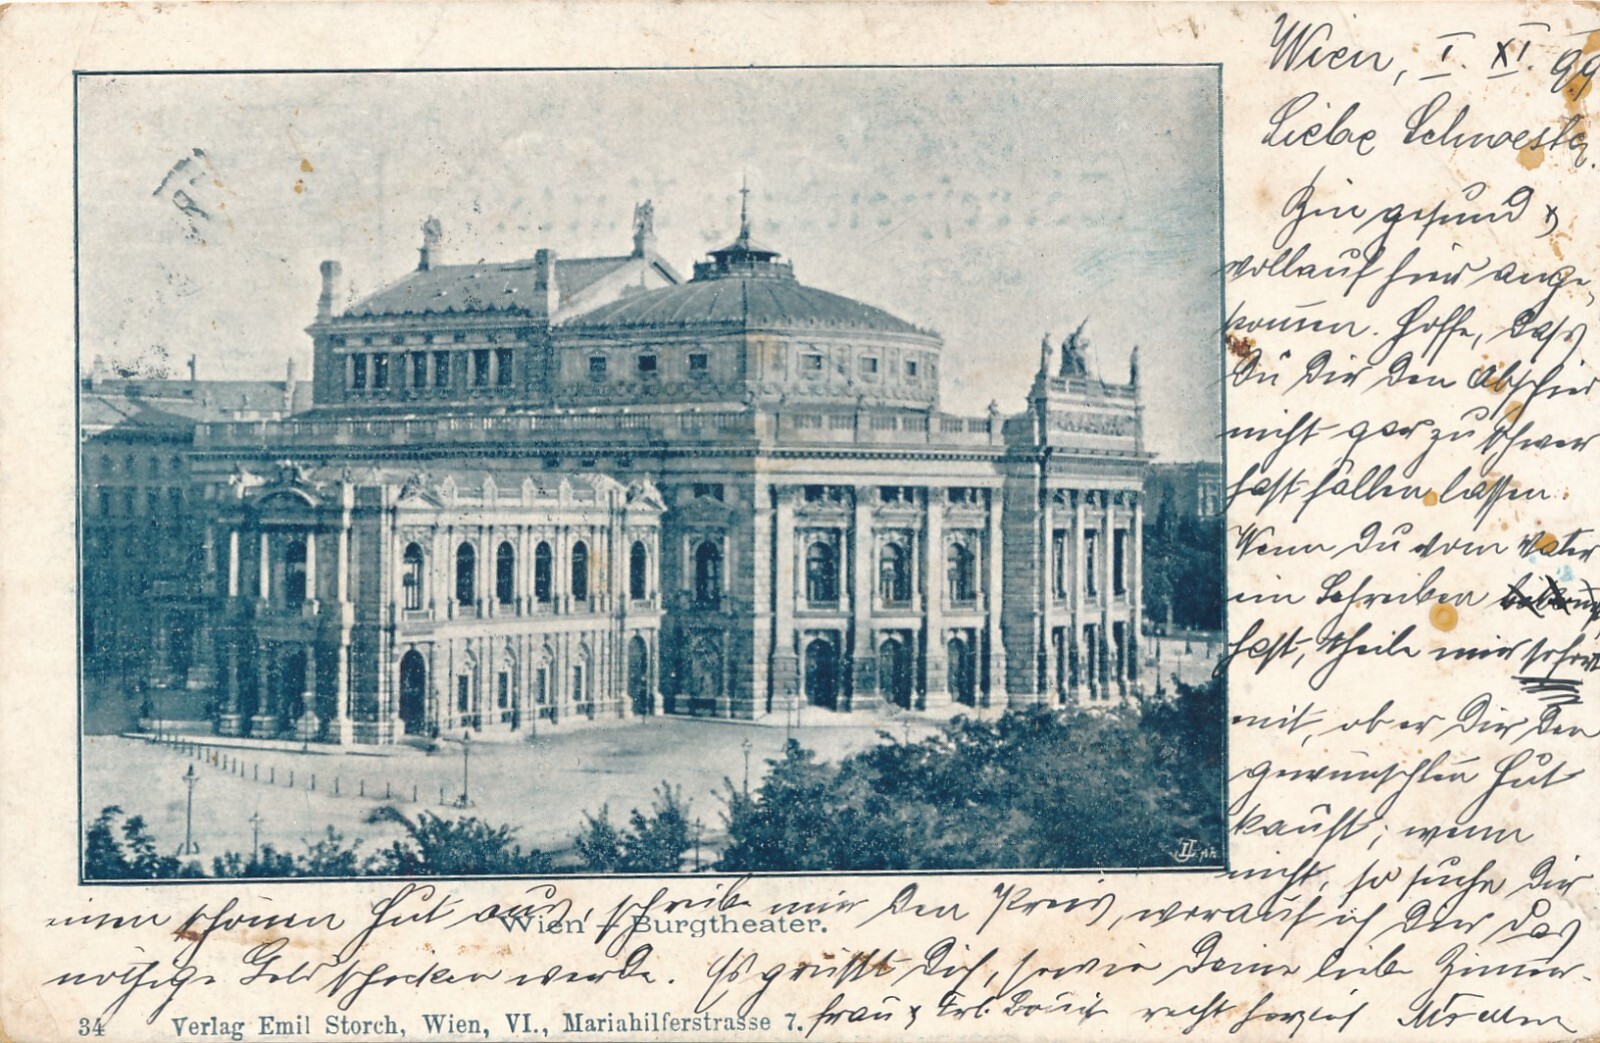 Wien, I. XI. 99
Liebe Schwester.
Bin gesund &
vollauf hier ange-
kommen. Hoffe, dass
Du Dir den Abschied
nicht gar zu schwer
hast fallen lassen.
Wenn Du vom Vater
ein Schreiben
hast, theile mir sofort
mit, ob er Dir den
gewünschten Hut
kauft; wenn
nicht, so suche Dir
einen schönen Hut aus, schreibe mir den Preis, worauf ich Dir das
Wien – Burgtheater.
nöthige Geld schicken werde. Es grüsst Dich, sowie Deine liebe Zimmer-
frau & Frl. recht herzlich
34 Verlag Emil Storch, Wien, VI., Mariahilferstrasse 7.